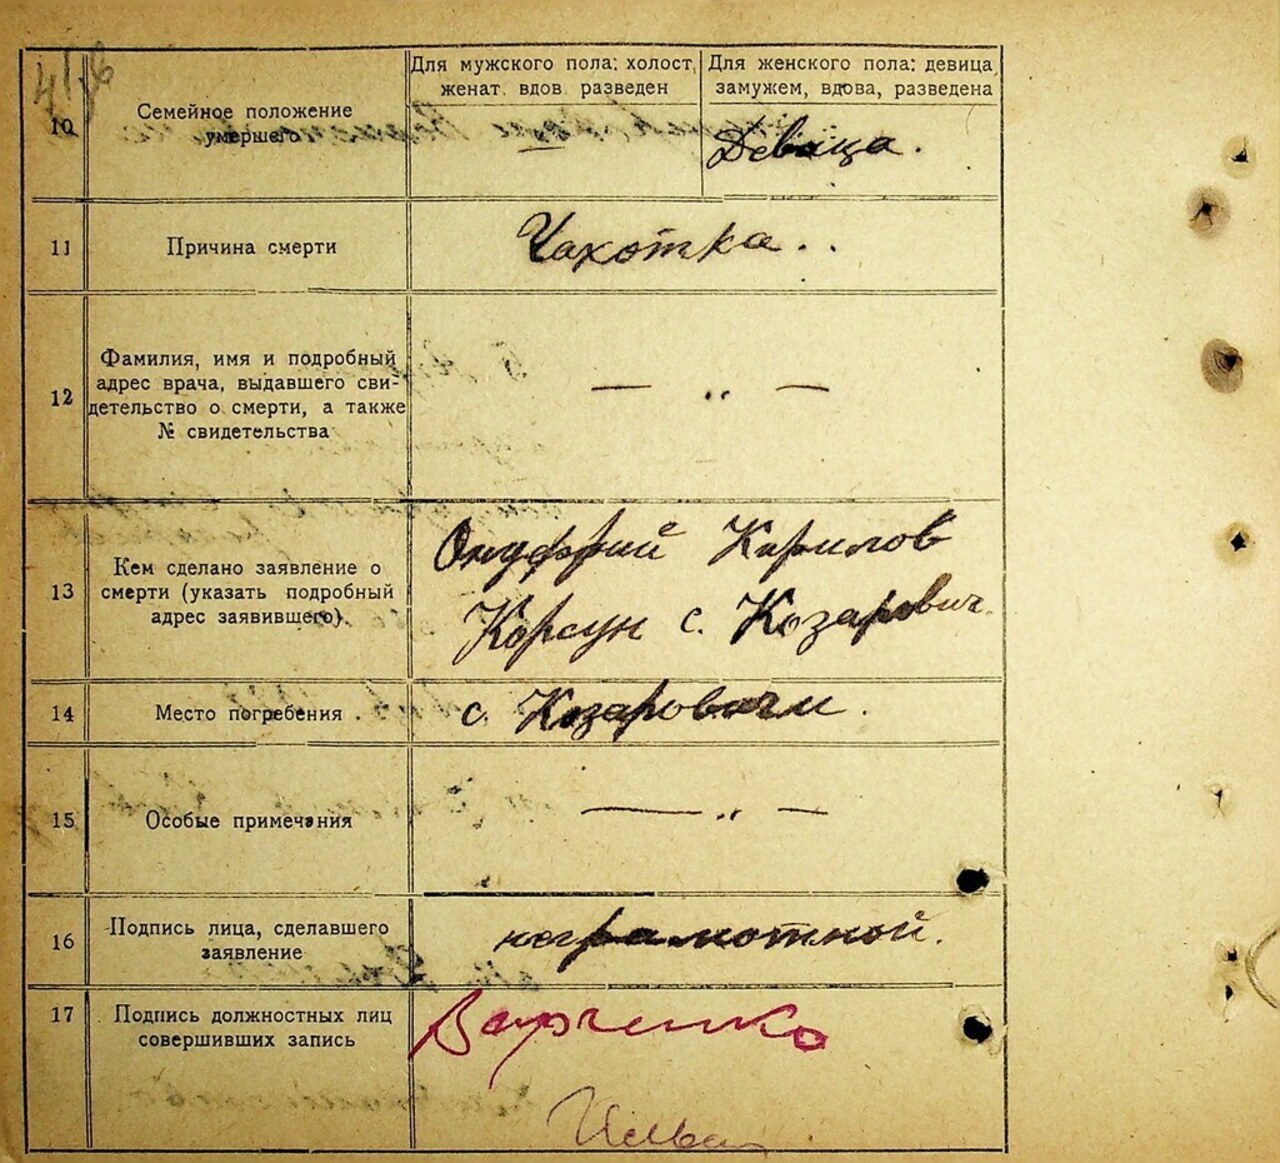 10
Семейное положение
умершего
Для мужского пола: холост,
женат вдов разведен
—
Для женского пола: девица,
замужем, вдова, разведена
Девица.
11
Причина смерти
Чахотка..
12
Фамилия, имя и подробный
адрес врача, выдавшего сви-
детельство о смерти, а также
№ свидетельства
— „ —
13
Кем сделано заявление о
смерти (указать подробный
адрес заявившего).
Онуфрий Кирилов
Корсун с. Козарович
14
Место погребения
с. Козаровичи.
15
Особые примечания
— „ —
16
Подпись лица, сделавшего
заявление
неграмотной.
17
Подпись должностных лиц
совершивших запись